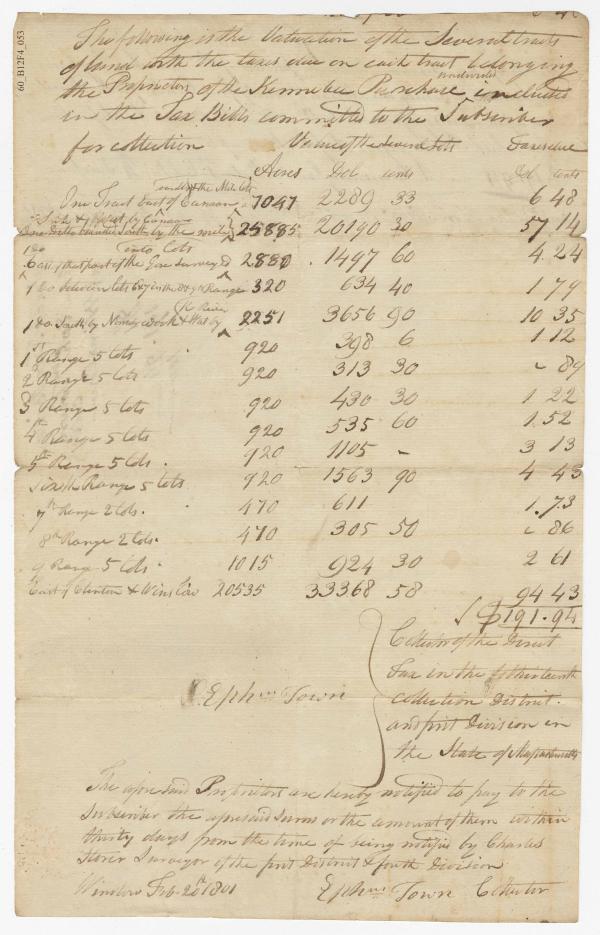 60_B12F4_053
The following is the Valuation of the Several tracts
of land with the taxes due on each tract belonging
undivided
the Proprietors of the Kennebec Purchase included
in the Tax Bills committed to the Subscriber
for collection Value of the several Lots Taxes due
Acres Dol cents Dol cents
One Tract East of Canaan & the Mile lots 7047 2289 33 6 48
South & West by Canaan
One Ditto bounded South by the mile 25885 20190 30 57 14
into lots
1 do East of that part of the Gore surveyed 2880 1497 60 4 24
1 do between lots in the Range 320 634 40 1 79
K River
1 do South by Norridgewock & West by 2251 3656 90 10 35
1st Range 5 lots 920 398 6 1 12
2d Range 5 lots 920 313 30 89
3 Range 5 lots 920 430 30 1 22
4th Range 5 lots 920 535 60 1.52
5th Range 5 lots. 920 1105 - 3 13
Sixth Range 5 lots 920 1563 90 4 43
7th Range 2 lots. 470 611 1.73
8th Range 2 lots. 470 305 50 86
9 Range 5 lots 1015 924 30 2 61
East of Clinton & Winslow 20535 33368 58 94 43
$191.94
Collector of the Direct
Tax in the
Ephm Town collection District.
and first Division in
the State of Massachusetts
The aforesaid Proprietors are hereby notified to pay to the
Subscriber the aforesaid sums or the amount of them within
thirty days from the time of being notified by Charles
Storer Surveyor of the first District & fourth Division
Winslow Feb. 20th 1801 Ephm Town Collector